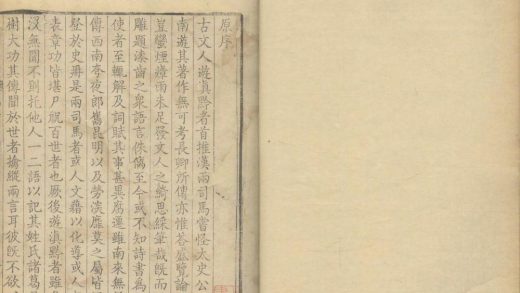 原序
古文人遊滇黔者首推漢兩司馬嘗怪太史公
南遊其著作無可考長卿所傳亦惟荅盛覽論
豈蠻煙瘴雨未足發文人之綺思綵筆哉旣而
雕題漆齒之衆語言侏㒧至今或不知詩書爲
使者至輒解及詞賦其事甚異腐遷雖南來無
傳西南夸夜郎舊昆明以及勞浸靡莫之屬皆
登於史冊是兩司馬者或人文藉以化導或人
表章功皆堪尸祝百世者也厥後遊滇黔者雖
沒無聞不則托他人一二語以記其姓氏諸葛
樹大功其傳聞於世者擒縱兩言耳彼旣不欲